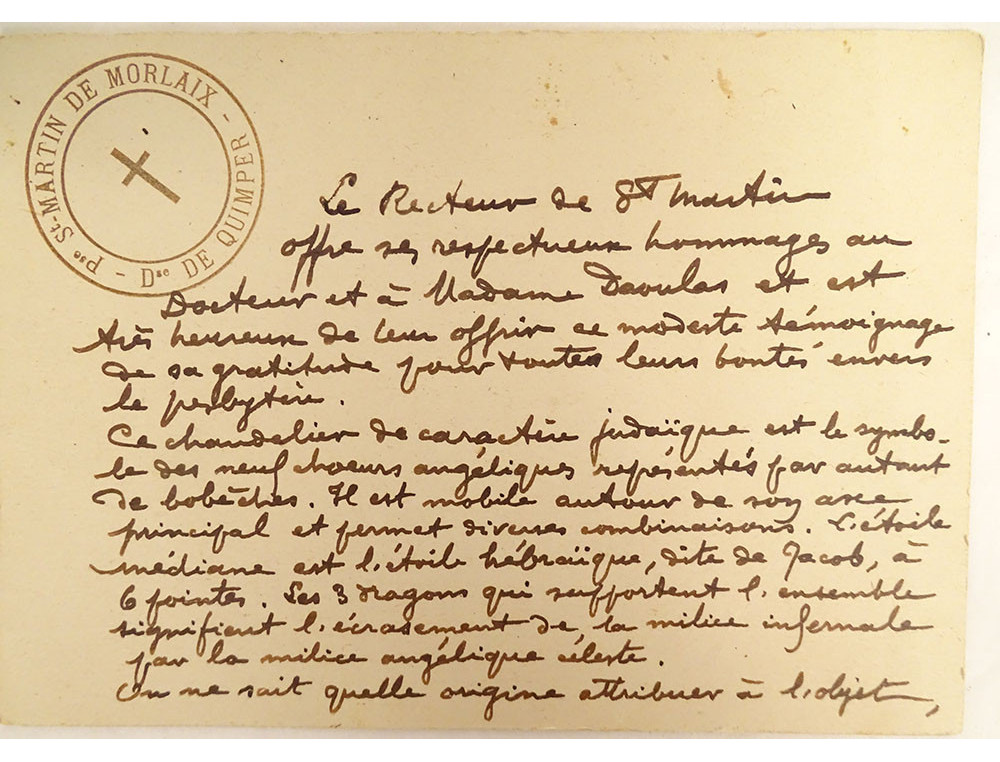 Pse St-MARTIN DE MORLAIX - Dse DE QUIMPER -
Le Recteur de St Martin
offre ses respectueux hommages au
Docteur et à Madame Daoulas et est
très heureux de leur offrir ce modeste témoignage
de sa gratitude pour toutes leurs bontés envers
le presbytère.
Ce chandelier de caractère judaïque est le symbo-
le des neuf choeurs angéliques représentés par autant
de bobèches. Il est mobile autour de son axe
principal et permet diverses combinaisons. L'étoile
médiane est l'étoile hébraïque, dite de Jacob, à
6 pointes. Les 3 dragons qui supportent l'ensemble
signifient l'écrasement de la milice infernale
par la milice angélique céleste.
On ne sait quelle origine attribuer à l'objet,